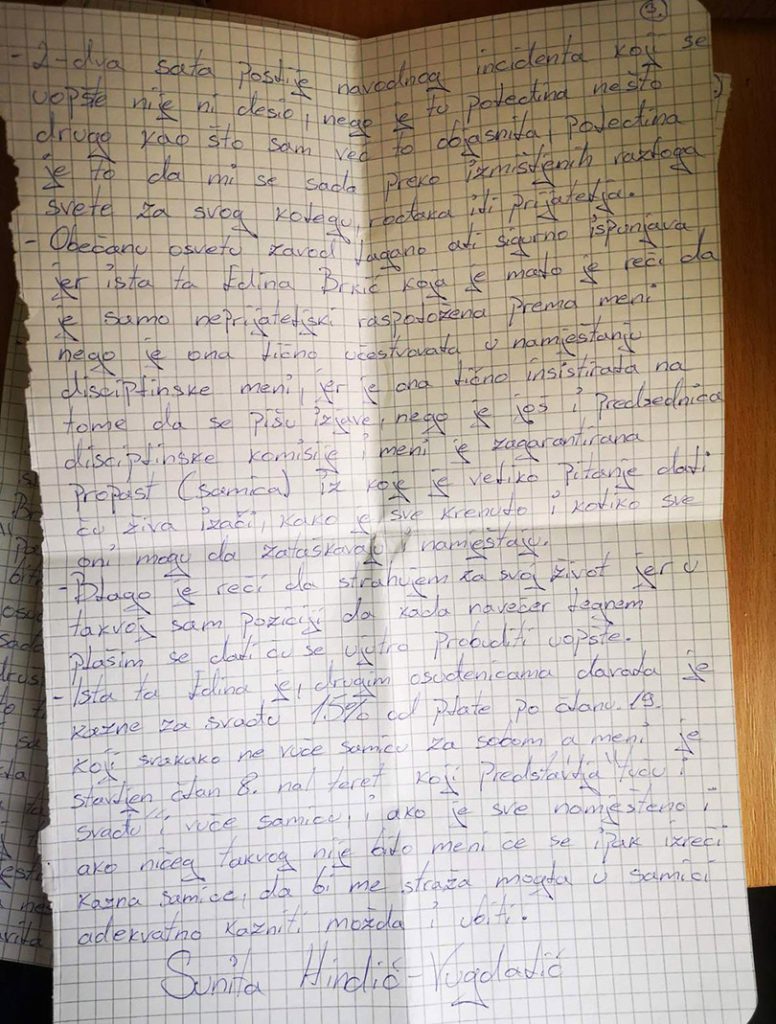 3.
- 2-dva sata poslije navodnog incidenta koji se
uopšte nije ni desio, nego je to poleđina nešto
drugo kao što sam več to objasnila, poleđina
je to da mi se sada preko izmišljenih razloga
svete za svog kolegu, rođaka ili prijatelja.
- Obečanu osvetu zavod lagano ali sigurno ispunjava
jer ista ta Edina Brkić koja je malo je reči da
je samo neprijateljski raspoložena prema meni
nego je ona lično učestvovala u namještanju
disciplinske meni, jer je ona lično insistirala na
tome da se pišu izjave, nego je još i predsednica
disciplinske komisije i meni je zagarantirana
propast (samica) iz koje je veliko pitanje dali
ču živa izači, kako je sve krenulo i koliko sve
oni mogu da zataškavaju i namještaju.
- Blago je reči da strahujem za svoj život jer u
takvoj sam poziciji da kada navečer legnem
plašim se dali ču se ujutro probuditi uopšte.
- Ista ta Edina je, drugim osuđenicama davala je
kazne za svađu 15% od plate po članu. 19.
koji svakako ne vuče samicu za sobom a meni je
stavljen član 8. na teret koji predstavlja "tuču i
svađu" i vuče samicu, i ako je sve namješteno i
ako ničeg takvog nije bilo meni ce se ipak izreči
kazna samice, da bi me straža mogla u samici
adekvatno kazniti možda i ubiti.
Sunita Hindić-Vugdalić